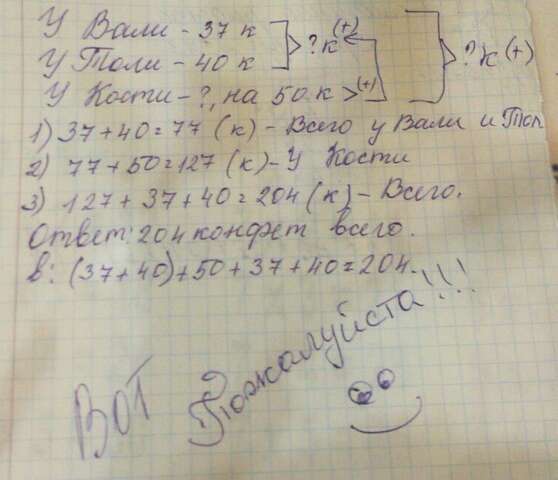 У Вали - 37 к ?к (+) ?к (+)
У Толи - 40 к
У Кости - ?, на 50 к > (+)
1) 37+40=77 (к) - Всего у Вали и Тол
2) 77+50=127 (к) - У Кости
3) 127+37+40=204 (к) - Всего.
Ответ: 204 конфет всего.
в: (37+40)+50+37+40=204.
ВОТ Пожалуйста!!!